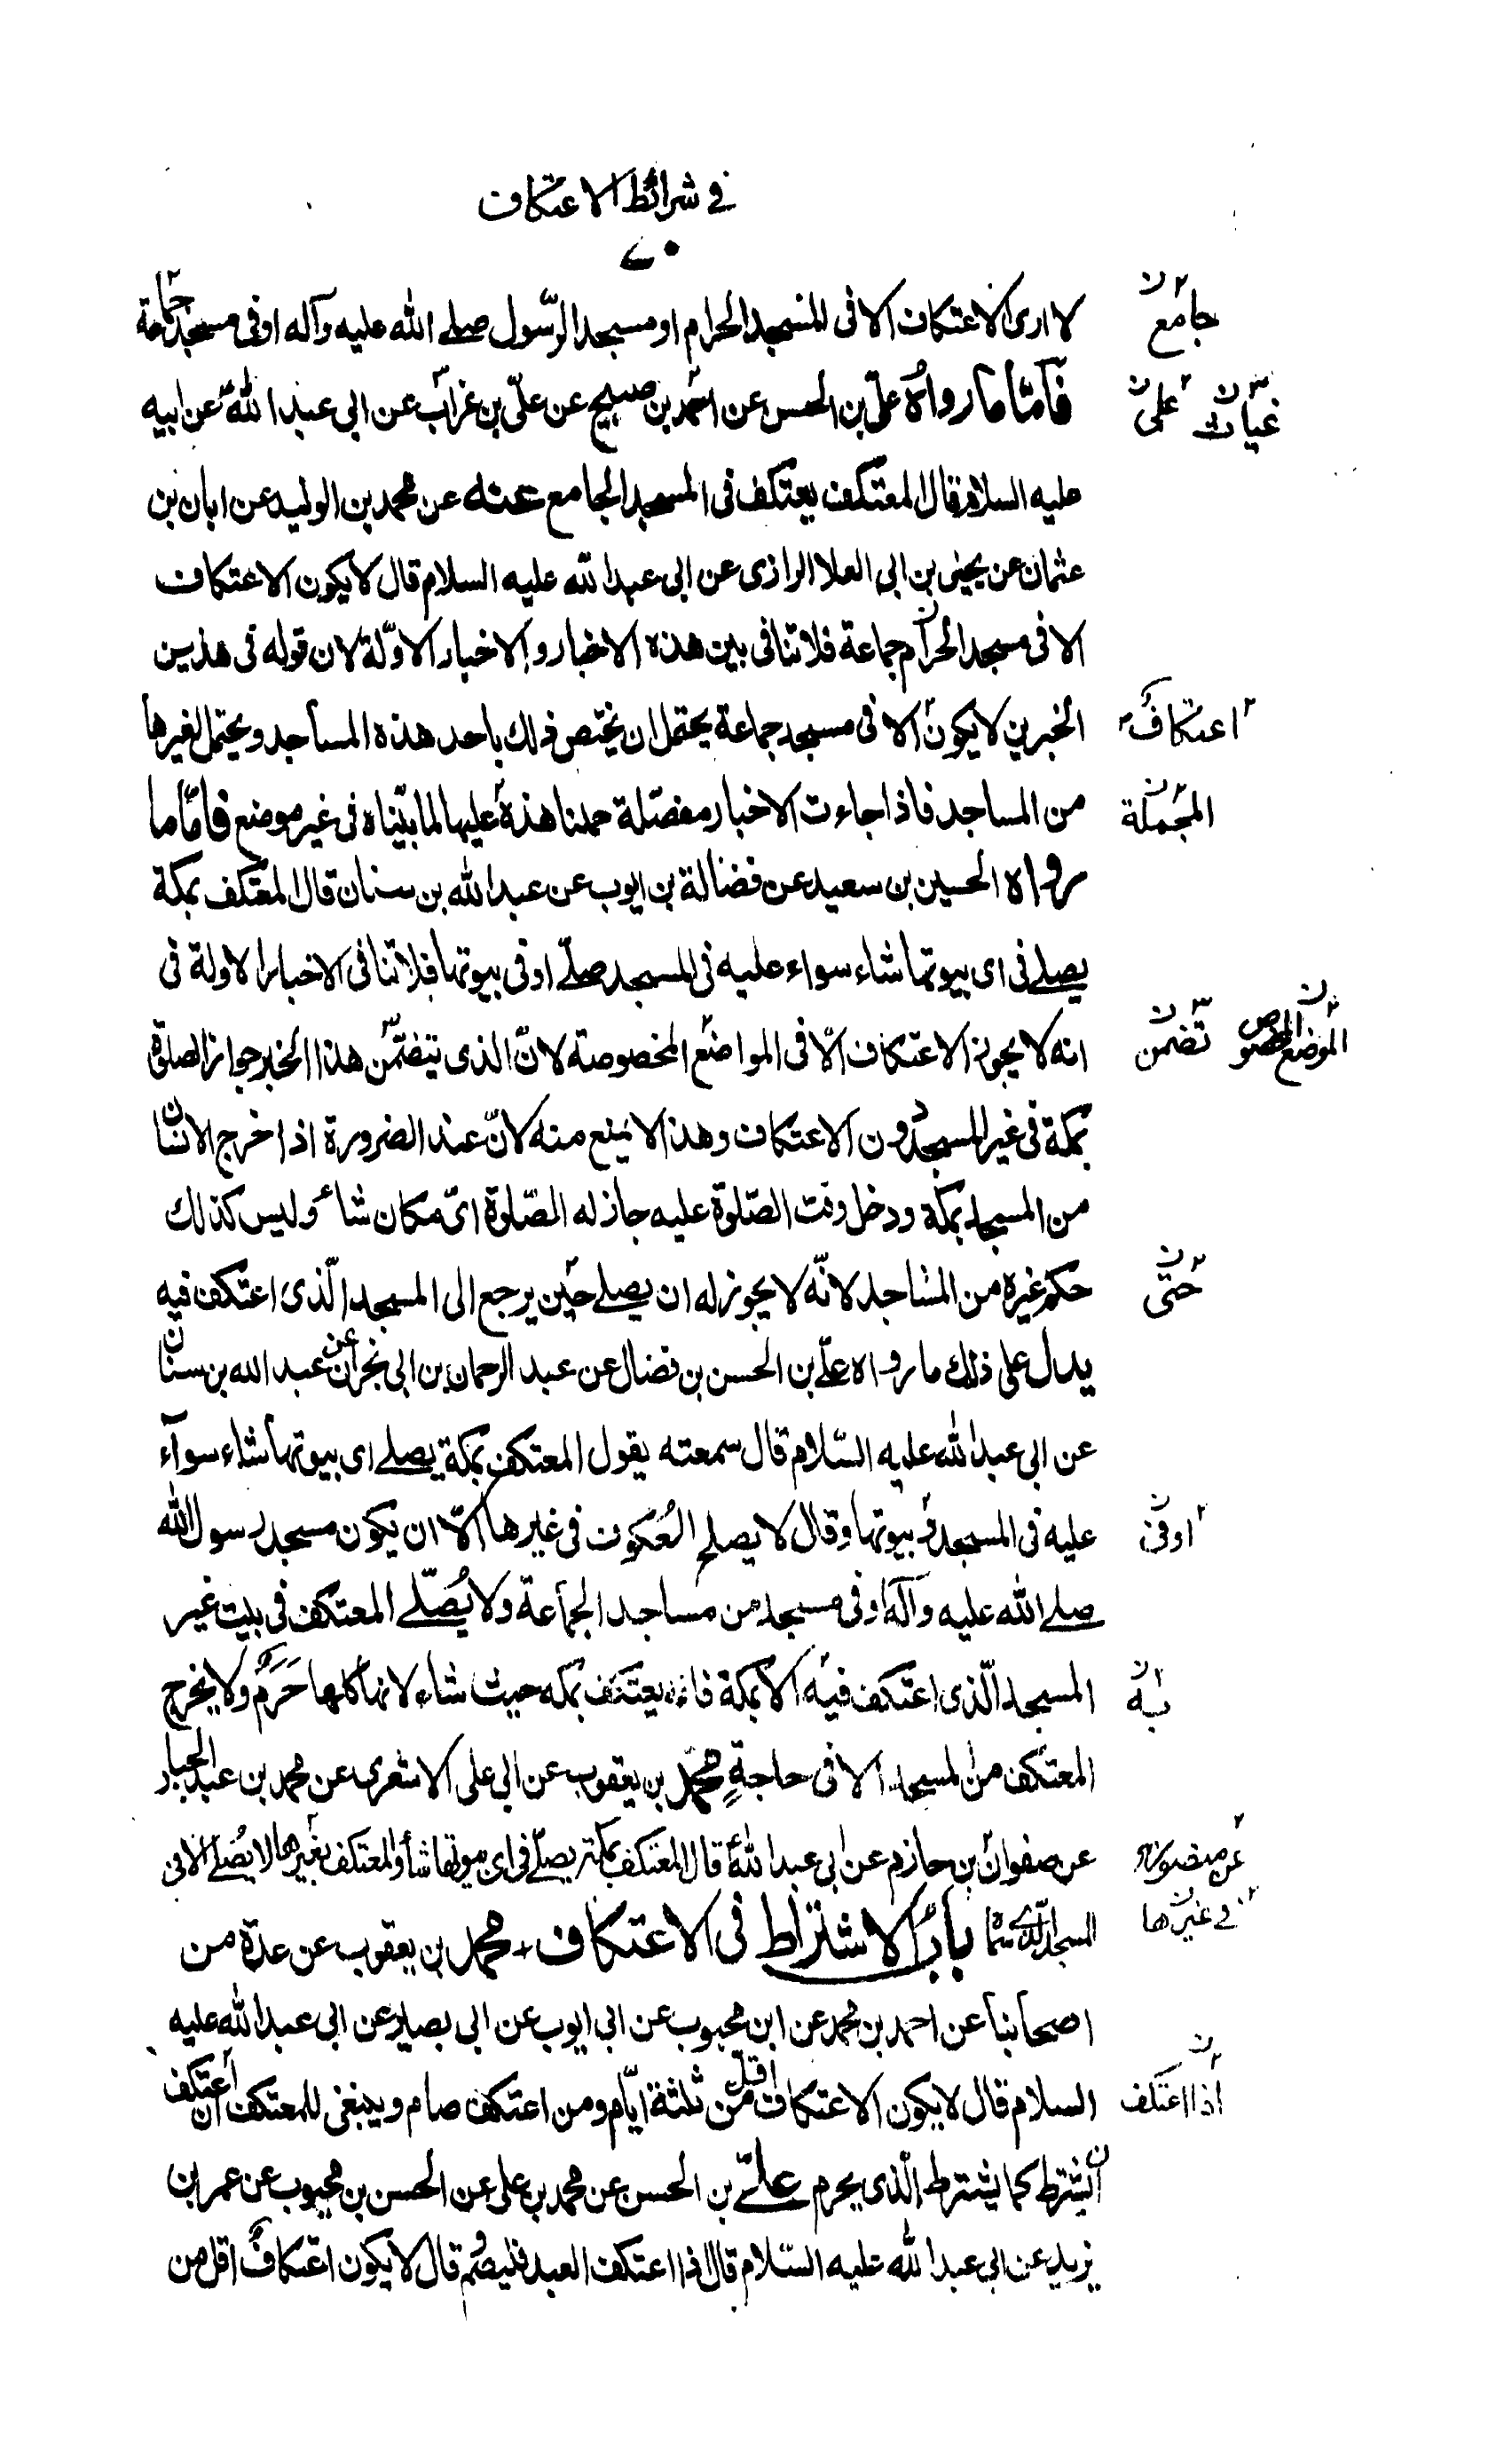 في شرائط الاعتكاف
٧٠
لا ارى الاعتكاف الا فى المسجد الحرام او مسجد الرّسول صلى الله عليه وآله او فى مسجد جماعة
جامع
فامّا ما رواه علىّ بن الحسن عن احمد بن صبيح عن علىّ بن غراب عن ابى عبد الله عن ابيه
غياث على
عليه السلام قال المعتكف يعتكف فى المسجد الجامع عنه عن محمد بن الوليد عن ابان بن
عثمان عن يحيى بن ابى العلا الرازى عن ابى عبد الله عليه السلام قال لا يكون الاعتكاف
الا فى مسجد الحرام جماعة فلا تنافى بين هذه الاخبار والاخبار الاوّلة لان قوله فى هذين
الخبرين لا يكون الا فى مسجد جماعة يحتمل ان يختص ذلك باحد هذه المساجد ويحتمل لغيرها
اعتكاف
من المساجد فاذا جاءت الاخبار مفصّلة حملنا هذه عليها لما بيّناه فى غير موضع فامّا ما
المجملة
رواه الحسين بن سعيد عن فضالة بن ايوب عن عبد الله بن سنان قال المعتكف بمكة
يصلى فى اى بيوتها شاء سواء عليه فى المسجد صلّى او فى بيوتها فلا تنافى الاخبار الاولة فى
انه لا يجوز الاعتكاف الّا فى المواضع المخصوصة لانّ الذى يتضمّن هذا الخبر جواز الصلوة
تضمن الموضع المخصوص
بمكة فى غير المسجد دون الاعتكاف وهذا لا يمنع منه لانّ عند الضرورة اذا خرج الانسان
من المسجد بمكة ودخل وقت الصّلوة عليه جاز له الصّلوة اىّ مكان شاء وليس كذلك
حكم غيره من المساجد لانّه لا يجوز له ان يصلى حين يرجع الى المسجد الّذى اعتكف فيه
حتى
يدل على ذلك ما رواه علىّ بن الحسن بن فضال عن عبد الرحمان بن ابى نجران عن عبد الله بن سنان
عن ابى عبد الله عليه السّلام قال سمعته يقول المعتكف بمكة يصلى اى بيوتها شاء سواء
عليه فى المسجد و بيوتها وقال لا يصلح العُكوف فى غيرها الّا ان يكون مسجد رسول الله
او فى
صلى الله عليه وآله او فى مسجد من مساجد الجماعة ولا يُصلّى المعتكف فى بيت غير
المسجد الّذى اعتكف فيه الا بمكة فانه يعتكف بمكه حيث شاء لانها كلها حَرَم ولا يخرج
به
المعتكف من المسجد الا فى حاجةٍ محمّد بن يعقوب عن ابى على الاشعرى عن محمد بن عبد الجبار
عن صفوان بن حازم عن ابى عبد الله قال المعتكف بمكة يصلّى فى اى بيوتها شاء والمعتكف بغيرها لا يُصلى الا فى
عن منصور
المسجد الّذى سمّا بابُ الاشتراط فى الاعتكاف محمد بن يعقوب عن عدة من
فى غيرها
اصحابنا عن احمد بن محمد عن ابن محبوب عن ابى ايوب عن ابى بصير عن ابى عبد الله عليه
السلام قال لا يكون الاعتكاف اقلّ من ثلثة ايّام ومن اعتكف صام وينبغى للمعتكف ان اعتكف
اذا اعتكف
ان يشترط كما يشترط الّذى يحرم علىّ بن الحسن عن محمد بن على عن الحسن بن محبوب عن عمر بن
يزيد عن ابى عبد الله عليه السّلام قال اذا اعتكف العبد فليصُم قال لا يكون اعتكافٌ اقل من